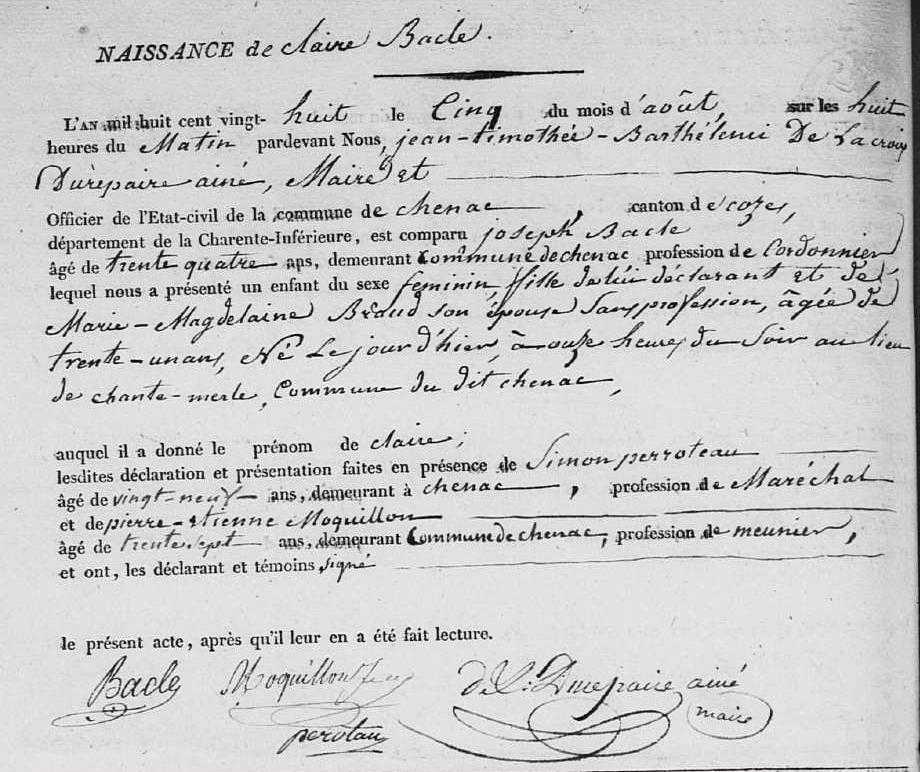 NAISSANCE de claire Bacle.
L'AN mil huit cent vingt- huit le Cinq du mois d'août, sur les huit
heures du Matin pardevant Nous, jean-timothée-Barthélemi De Lacroix
Durepaire ainé, Maire et
Officier de l'Etat-civil de la commune de chenac, canton de cozes,
département de la Charente-Inférieure, est comparu joseph Bacle
âgé de trente quatre ans, demeurant Commune de chenac profession de Cordonnier
lequel nous a présenté un enfant du sexe feminin, fille de lui déclarant et de
Marie-Magdelaine Béaud son épouse Sans profession, âgée de
trente-un ans, Né Le jour d'hier, à onze heures du Soir au lieu
de chante-merle, Commune du dit chenac,
auquel il a donné le prénom de claire;
lesdites déclaration et présentation faites en présence de Simon perroteau
âgé de vingt-neuf ans, demeurant à chenac, profession de Maréchal
et de pierre-etienne Moquillon
âgé de trente sept ans, demeurant Commune de chenac, profession de meunier,
et ont, les déclarant et témoins signé
le présent acte, après qu'il leur en a été fait lecture.
Bacle Moquillon ainé
perotau maire